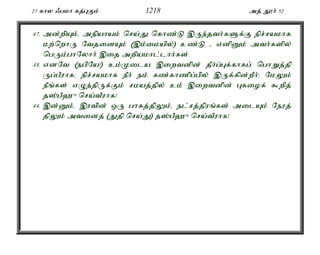 27 கால ஃபமா கத்புகும் 1218 அத் தூர் 52
47. அன்றியும், அநியாயம் செய்து கொண்டு இருந்தவர்களுக்கு நிச்சயமாக
மற்றொரு வேதனையும் (இம்மையில்) உண்டு - எனினும் அவர்களில்
பெரும்பாலோர் இதை அறியமாட்டார்கள்.
48. எனவே (நபியே!) உம்முடைய இறைவனின் தீர்ப்புக்காகப் பொறுத்தி
ருப்பீராக; நிச்சயமாக நீர் நம் கண்காணிப்பில் இருக்கின்றீர்; மேலும்
நீங்கள் எழுந்திருக்கும் சமயத்தில் உம் இறைவனின் புகழைக் கூறித்
தஸ்பீஹு செய்வீராக!
49. இன்னும், இரவின் ஒரு பாகத்திலும், நட்சத்திரங்கள் அடையும் நேரத்
திலும் அவனைத் (துதி செய்து) தஸ்பீஹு செய்வீராக!